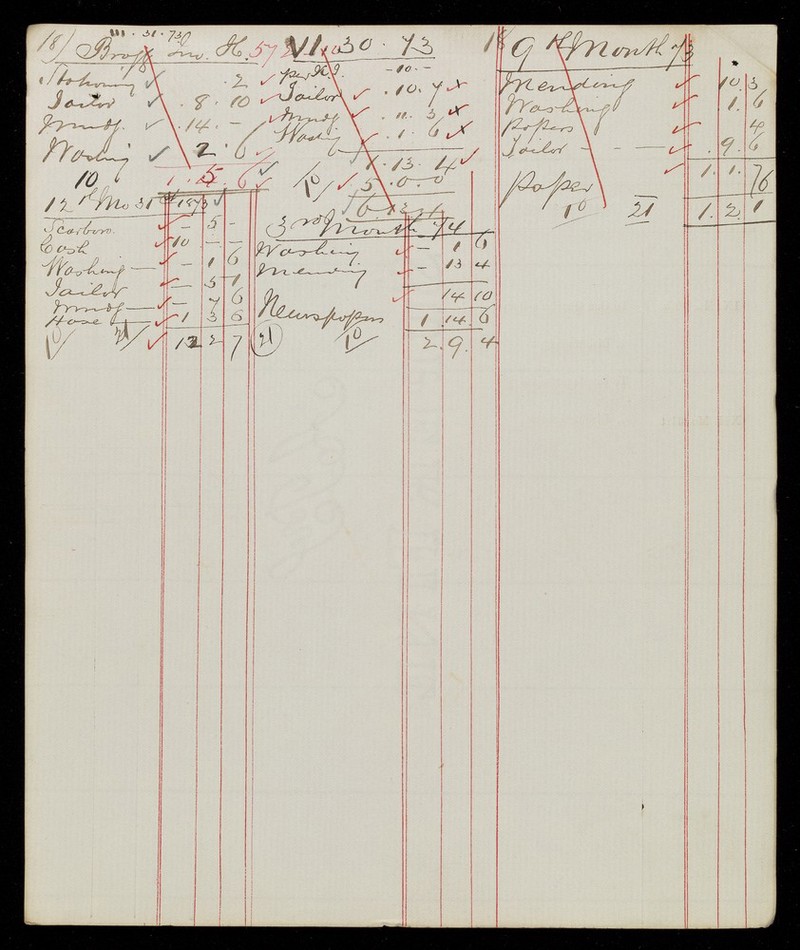 18)
III . 31 . 73
Jno. H. 57
Stationery . 2
Tailor . 8 . 10
mndg . 14 . -
Washing 2 . 6
10 1 . 5 . 6
VI . 30 . 73
per H.I. - 10 . -
Tailor . 10 . 7
mndg . 11 . 3
Washing . 1 . 6
1 . 13 . 4
10 5 . 0 . 0
9th Month 73
Mending 10 . 3
Washing 1 . 6
Papers 4
Tailor - - - . 9 . 6
1 . 1 . 7
paper 6
10 21 1 . 2 . 1
12th Mo 31st 1873
Scarboro. - 5 -
Cash 10 - -
Washing - - 1 6
Tailor - 5 1
mndg - - 7 6
Hose 1 3 6
10 21 12 2 7
3rd Month 74
Washing - 1 6
mending - 13 4
14 10
Newspapers 1 . 14 . 6
21 10 2 . 9 . 4